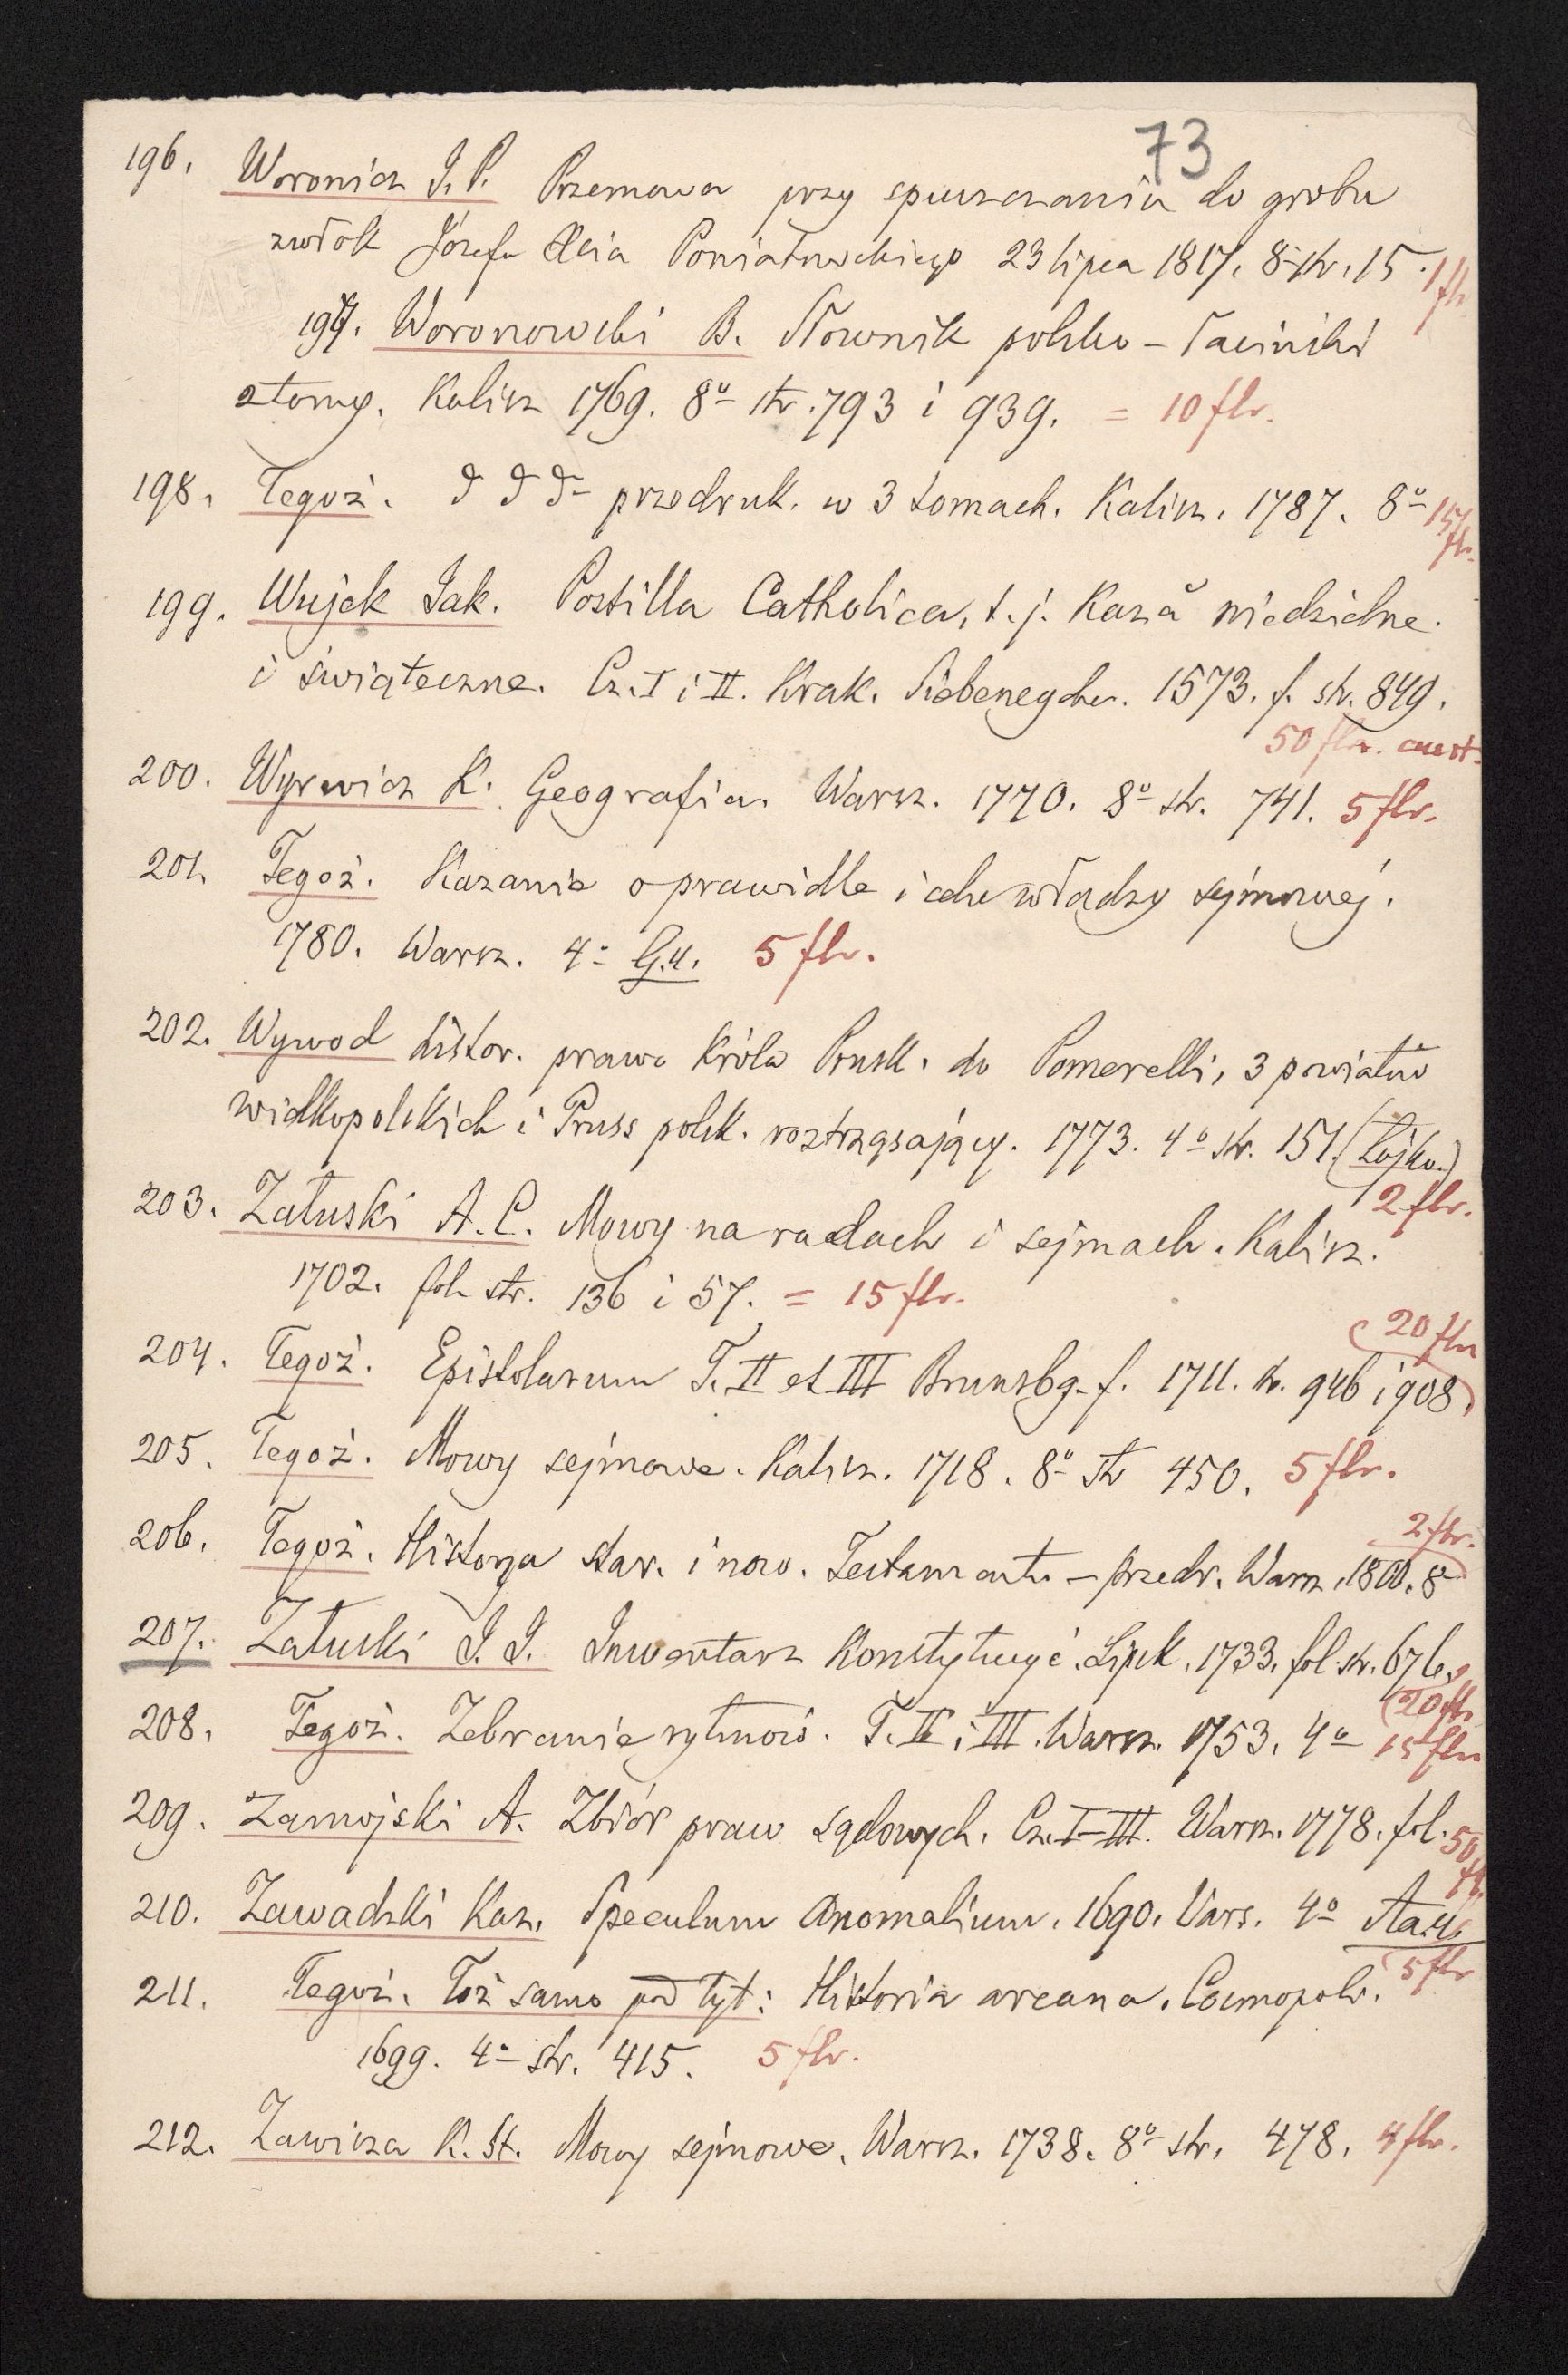 73
196. Woronicz J. P. Przemowa przy spuszczaniu do grobu
zwłok Józefa Xcia Poniatowskiego 23 lipca 1817. 8º str. 15. 1 flr
197. Woronowski B. Słownik polsko-łaciński
2 tomy. Kalisz 1769. 8º str. 793 i 939. = 10 flr.
198. Tegoż. przedruk. w 3 tomach. Kalisz. 1787. 8º 15 flr.
199. Wujek Jak. Postilla Catholica, t. j. Kazā niedzielne
i świąteczne. Cz. I i II. Krak. Siebeneycher. 1573. f. str. 849.
50 flr.
200. Wyrwicz K. Geografia. Warsz. 1770. 8º str. 741. 5 flr.
201. Tegoż. Kazanie o prawidle i celu władzy sejmowej.
1780. Warsz. 4º G.4. 5 flr.
202. Wywod histor. prawa Króla Prusk. do Pomerelli, 3 powiatów
wielkopolskich i Pruss polsk. roztrząsający. 1773. 4º str. 151. (Łojko.)
2 flr.
203. Załuski A. C. Mowy na radach i sejmach. Kalisz.
1702. fol. str. 136 i 57. = 15 flr.
20 flr
204. Tegoż. Epistolarum T. II et III Brunsbg. f. 1711. str. 946 i 908
205. Tegoż. Mowy sejmowe. Kalisz. 1718. 8º str 450. 5 flr.
2 flr.
206. Tegoż. Historya star. i now. Testamentu - przedr. Warsz. 1800. 8º
207. Załuski J. J. Inwentarz Konstytucyi. Lipsk. 1733. fol. str. 676.
20 flr.
208. Tegoż. Zebranie rytmów. T. II i III. Warsz. 1753. 4º 15 flr
209. Zamojski A. Zbiór praw sądowych. Cz. I-III. Warsz. 1778. fol. 50 fl.
210. Zawadzki Kaz. Speculum Anomalium. 1690. Vars. 4º
5 flr
211. Tegoż. Toż samo pod tyt: Historia arcana. Cosmopoli.
1699. 4º str. 415. 5 flr.
212. Zawisza K. St. Mowy sejmowe. Warsz. 1738. 8º str. 478. 4 flr.